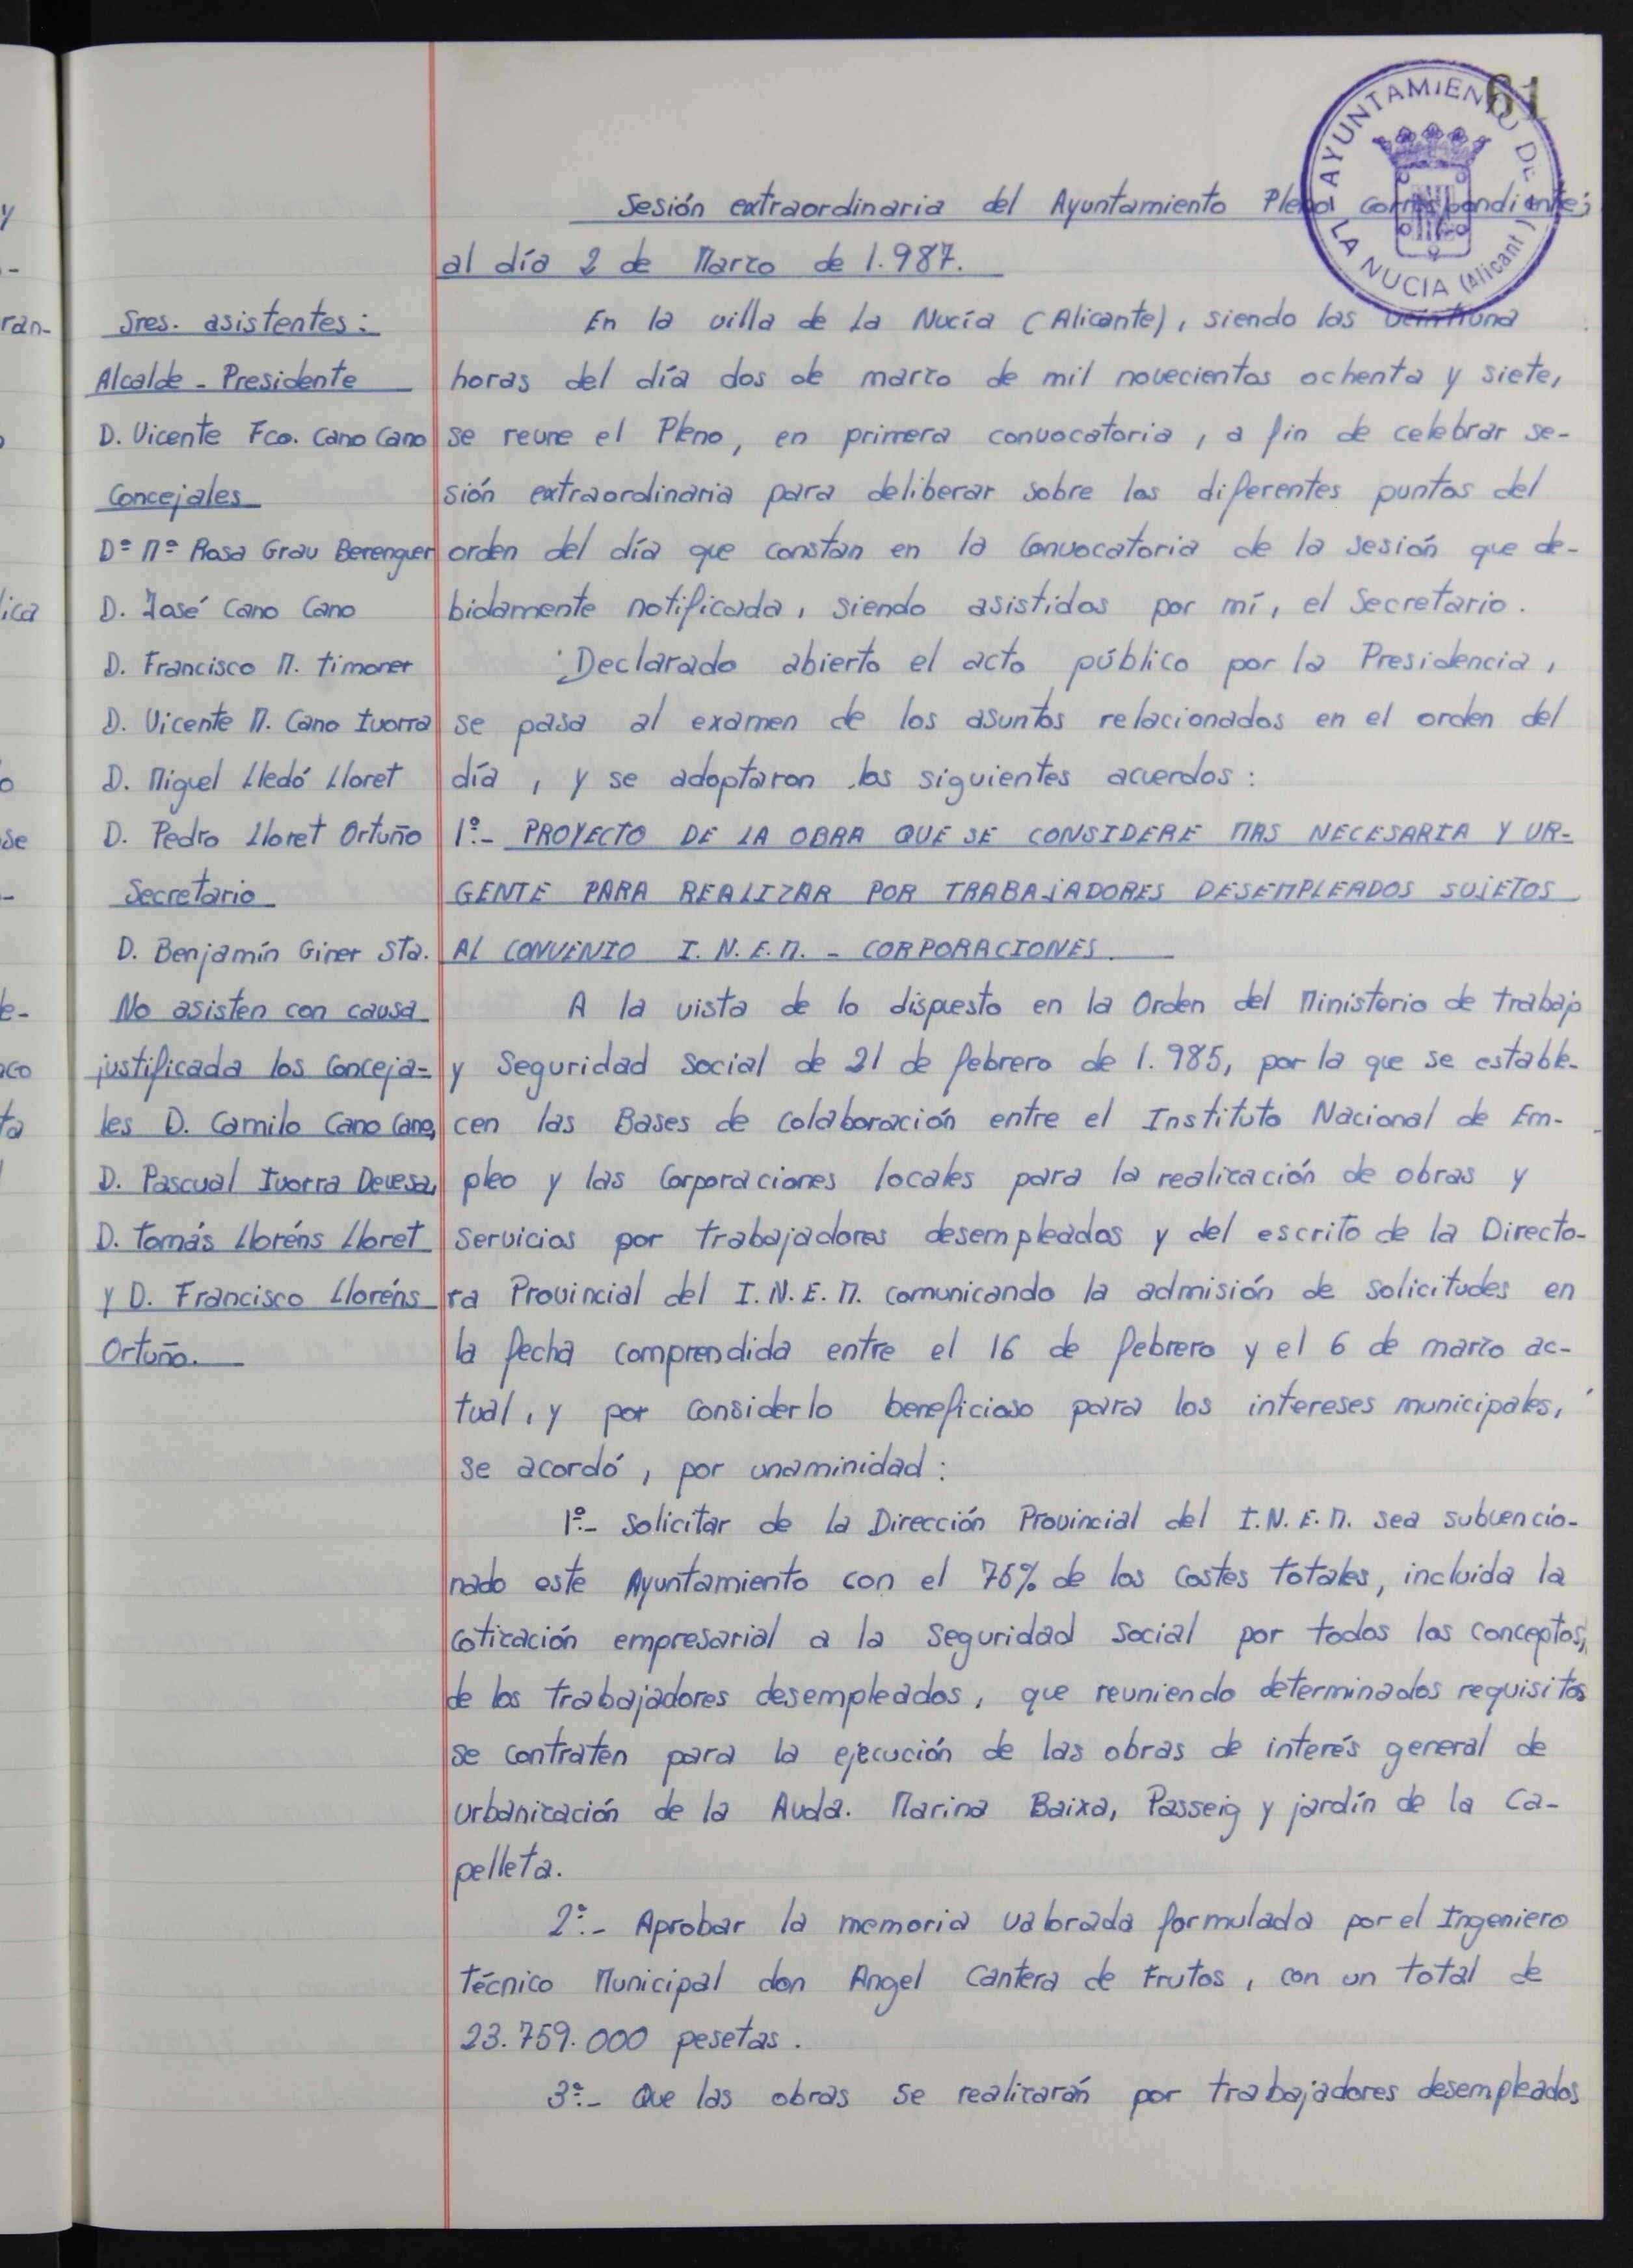 61
AYUNTAMIENTO DE LA NUCIA (Alicant)
Sesión extraordinaria del Ayuntamiento Pleno correspondiente
al día 2 de Marzo de 1.987.
Sres. asistentes:
Alcalde - Presidente
D. Vicente Fco. Cano Cano
Concejales
Dª Mª Rosa Grau Berenguer
D. José Cano Cano
D. Francisco M. Timoner
D. Vicente M. Cano Ivorra
D. Miguel Lledó Lloret
D. Pedro Lloret Ortuño
Secretario
D. Benjamín Giner Sta.
No asisten con causa
justificada los Conceja-
les D. Camilo Cano Cano,
D. Pascual Ivorra Devesa,
D. Tomás Lloréns Lloret
y D. Francisco Lloréns
Ortuño.
En la villa de La Nucía (Alicante), siendo las veintiuna
horas del día dos de marzo de mil novecientos ochenta y siete,
se reune el Pleno, en primera convocatoria, a fin de celebrar se-
sión extraordinaria para deliberar sobre los diferentes puntos del
orden del día que constan en la Convocatoria de la sesión que de-
bidamente notificada, siendo asistidos por mí, el Secretario.
Declarado abierto el acto público por la Presidencia,
se pasa al examen de los asuntos relacionados en el orden del
día, y se adoptaron los siguientes acuerdos:
1º.- PROYECTO DE LA OBRA QUE SE CONSIDERE MAS NECESARIA Y UR-
GENTE PARA REALIZAR POR TRABAJADORES DESEMPLEADOS SUJETOS
AL CONVENIO I.N.E.M. - CORPORACIONES.
A la vista de lo dispuesto en la Orden del Ministerio de Trabajo
y Seguridad Social de 21 de febrero de 1.985, por la que se estable-
cen las Bases de Colaboración entre el Instituto Nacional de Em-
pleo y las Corporaciones locales para la realización de obras y
servicios por trabajadores desempleados y del escrito de la Directo-
ra Provincial del I.N.E.M. comunicando la admisión de solicitudes en
la fecha comprendida entre el 16 de febrero y el 6 de marzo ac-
tual, y por considerlo beneficioso para los intereses municipales,
se acordó, por unaminidad:
1º.- Solicitar de la Dirección Provincial del I.N.E.M. sea subvencio-
nado este Ayuntamiento con el 75% de los costes totales, incluida la
cotización empresarial a la Seguridad Social por todos los conceptos,
de los trabajadores desempleados, que reuniendo determinados requisitos
se contraten para la ejecución de las obras de interés general de
urbanización de la Avda. Marina Baixa, Passeig y jardín de la Ca-
pelleta.
2º.- Aprobar la memoria valorada formulada por el Ingeniero
Técnico Municipal don Angel Cantera de Frutos, con un total de
23.759.000 pesetas.
3º.- Que las obras se realizarán por trabajadores desempleados